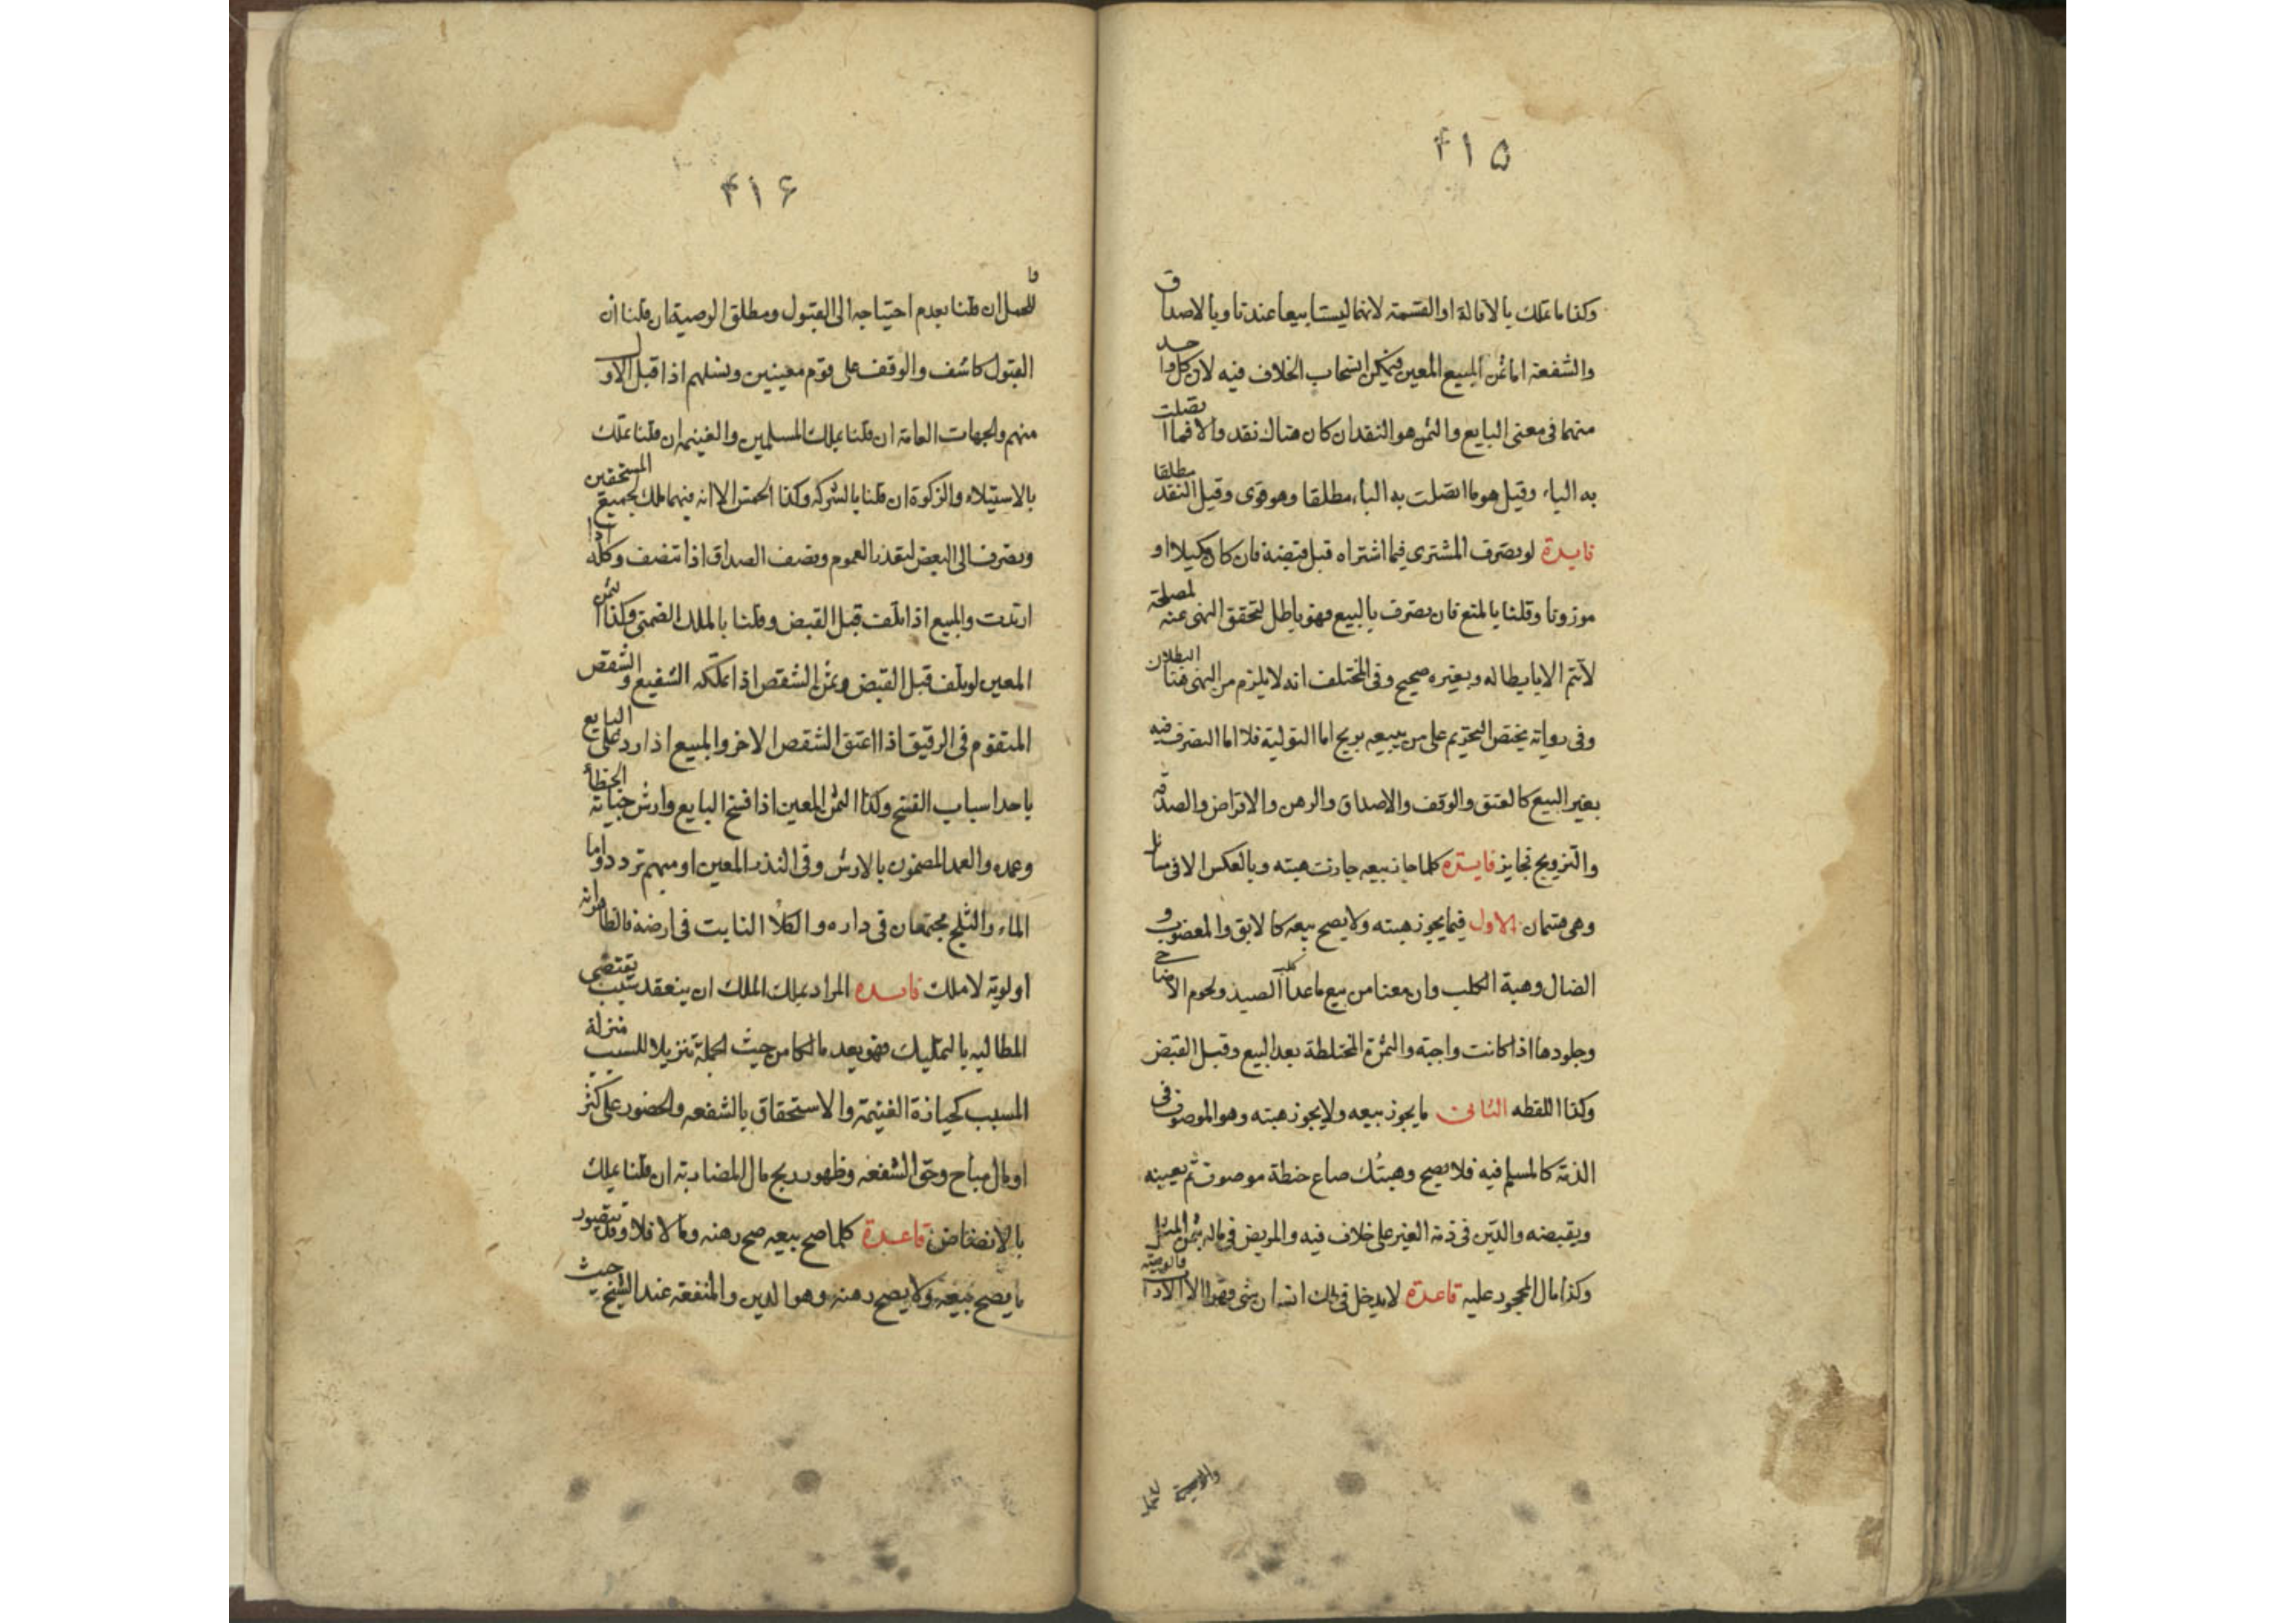 ۴۱۵
وكذا ما تملك بالاقالة او القسمة لانهما ليستا بيعا عندنا وبالاصداق
والشفعة اما ثمن المبيع المعين فيمكن انسحاب الخلاف فيه لان كل واحد
منهما فى معنى البايع والثمن هو النقد ان كان هناك نقد والا فما اتصلت
به الباء وقيل هو ما اتصلت به الباء مطلقا وهو قوى وقيل النقد مطلقا
فايدة لو تصرف المشترى فيما اشتراه قبل قبضة فان كان مكيلا او
موزونا وقلنا بالمنع فان تصرف بالبيع فهو باطل لتحقق النهى عنه لمصلحة
لا تتم الا بابطاله وبغيره صحيح وفى المختلف انه لا يلزم من النهى هنا البطلان
وفى رواية يختص التحريم على من يبيعه بربح اما التولية فلا اما التصرف فيه
بغير البيع كالعتق والوقف والاصداق والرهن والاقراض والصدقه
والتزويج فجايز فايده كلما جاز بيعه جازت هبته وبالعكس الا فى مسائل
وهى قسمان الاول فيما يجوز هبته ولا يصح بيعه كالابق والمغصوب و
الضال وهبة الكلب وان منعنا من بيع ما عدا كلب الصيد ولحوم الاضاحى
وجلودها اذا كانت واجبة والثمرة المختلطة بعد البيع وقبل القبض
وكذا اللقطه الثانى ما يجوز بيعه ولا يجوز هبته وهو الموصوف فى
الذمة كالمسلم فيه فلا يصح وهبتك صاع حنطة موصوف ثم يعينه
ويقبضه والدين فى ذمة الغير على خلاف فيه والمريض فى ماله بثمن المثل
وكذا مال المحجور عليه قاعدة لا يدخل فى ملك انسان شى قهرا الا الارث
والوصية للحمل
۴۱۶
للحمل ان قلنا بعدم احتياجها الى القبول ومطلق الوصية ان قلنا ان
القبول كاشف والوقف على قوم معينين ونسلهم اذا قبل الاول
منهم والجهات العامة ان قلنا بملك المسلمين والغنيمه ان قلنا تملك
بالاستيلاء والزكوة ان قلنا بالشركه وكذا الخمس الا انه فيهما ملك لجميع المستحقين
وتصرف الى البعض لتعذر العموم ونصف الصداق اذا تنصف وكله اذا
ارتدت والمبيع اذا تلف قبل القبض وقلنا بالملك الضمنى وكذا الثمن
المعين لو تلف قبل القبض وثمن الشقص اذا تملكه الشفيع والشقص
المتقوم فى الرقيق اذا اعتق الشقص الاخر والمبيع اذا رد على البايع
باحد اسباب الفسخ وكذا الثمن المعين اذا فسخ البايع وارش جناية الخطأ
وعمده والعمد المضمون بالارش وفى النذر المعين او مبهم تردد واما
الماء والثلج مجتمعان فى داره والكلأ النابت فى ارضه فالظاهر انه
اولوية لا ملك فايده المراد بملك الملك ان ينعقد سبب يقتضى
المطالبه بالتمليك فهو يعد مالكا من حيث الجملة تنزيلا للسبب منزلة
المسبب كحيازة الغنيمة والاستحقاق بالشفعه والحضور على كنز
او مال مباح وحق الشفعه وظهور ربح مال المضاربة ان قلنا يملك
بالانضاض قاعدة كلما صح بيعه صح رهنه وما لا فلا وقد يتصور
ما يصح بيعه ولا يصح رهنه وهو الدين والمنفعه عند الشيخ حيث